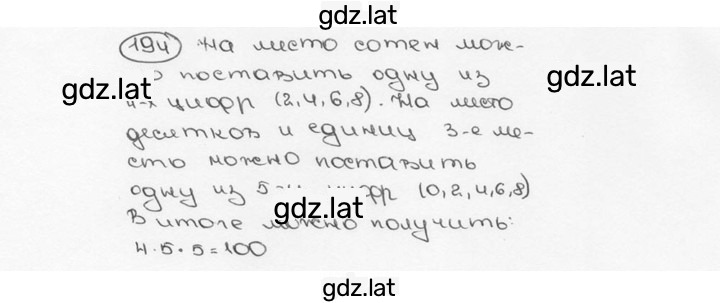 gdz.lat
194 На место сотен мож-
о поставить одну из
gdz.lat
gdz.lat
4-х цифр (2,4,6,8). На место
десятков и единиц 3-е ме-
сто можно поставить
одну из 5-и цифр (0,2,4,6,8)
gdz.lat
В итоге можно получить:
4·5·5=100
gdz.lat